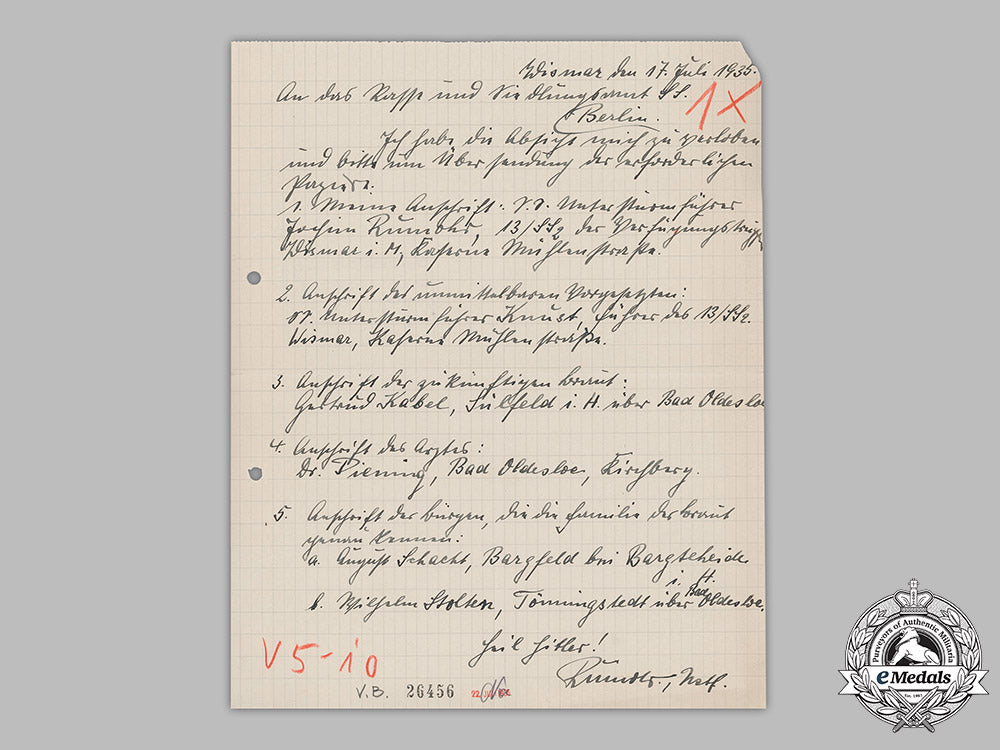 Wismar den 17. Juli 1935.
An das Rasse und Siedlungsamt SS.
Berlin.
1X
Ich habe die Absicht mich zu verloben
und bitte um Übersendung der erforderlichen
Papiere.
1. Meine Anschrift: S.S. Untersturmführer
Jochim Rumohr, 13/SS2 der Verfügungstruppe
Wismar i. M, Kaserne Mühlenstraße.
2. Anschrift des unmittelbaren Vorgesetzten:
SS. Untersturmführer Knust, Führer des 13/SS2.
Wismar, Kaserne Mühlenstraße.
3. Anschrift der zukünftigen Braut:
Gertrud Kabel, Sülfeld i. H. über Bad Oldesloe
4. Anschrift des Arztes:
Dr. Piening, Bad Oldesloe, Kirchberg.
5. Anschrift der Bürgen, die die Familie der Braut
genau kennen:
a. August Schacht, Bargfeld bei Bargteheide
i. H.
b. Wilhelm Stolten, Tönningstedt über Bad Oldesloe.
Heil Hitler!
Rumohr, Ustf.
V 5-10
V.B. 26456
Purveyors of Authentic Militaria
eMedals
Est. 1967